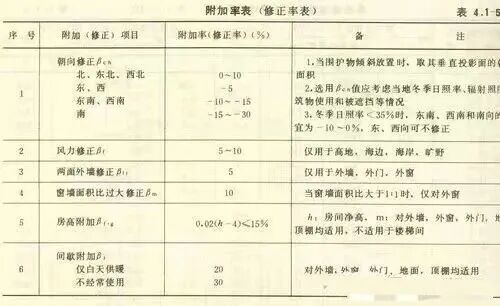 附加率表（修正率表）
表 4.1-5
序 号
附加（修正）项目
附加率（修正率）（%）
备 注
1
朝向修正βch
北、东北、西北
0～10
东、西
-5
东南、西南
-10～-15
南
-15～-30
1.当围护物倾斜放置时，取其垂直投影面的
面积
2.选用βch值应考虑当地冬季日照率、辐射照
筑物使用和被遮挡等情况
3.冬季日照率＜35%时，东南、西南和南向的
宜为-10～0%，东、西向可不修正
2
风力修正βf
5～10
仅用于高地，海边，海岸，旷野
3
两面外墙修正
5
仅用于外墙，外门，外窗
4
窗墙面积比过大修正βm
10
当窗墙面积比大于1:1时，仅对外窗
5
房高附加βf·g
0.02(h-4)≤15%
h：房间净高，m：对外墙，外窗，外门，地
顶棚均适用，不适用于楼梯间
6
间歇附加βj
仅白天供暖
20
不经常使用
30
对外墙，外窗，外门，地面，顶棚均适用